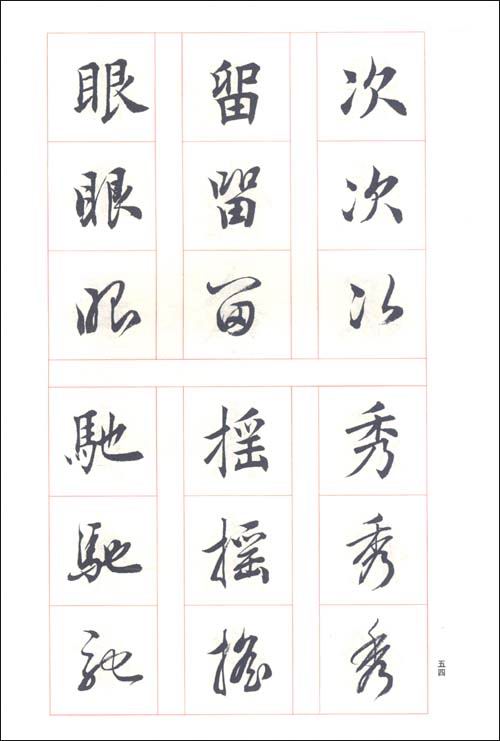 次次次
留留留
眼眼眼
秀秀秀
摇摇摇
馳馳馳
五四